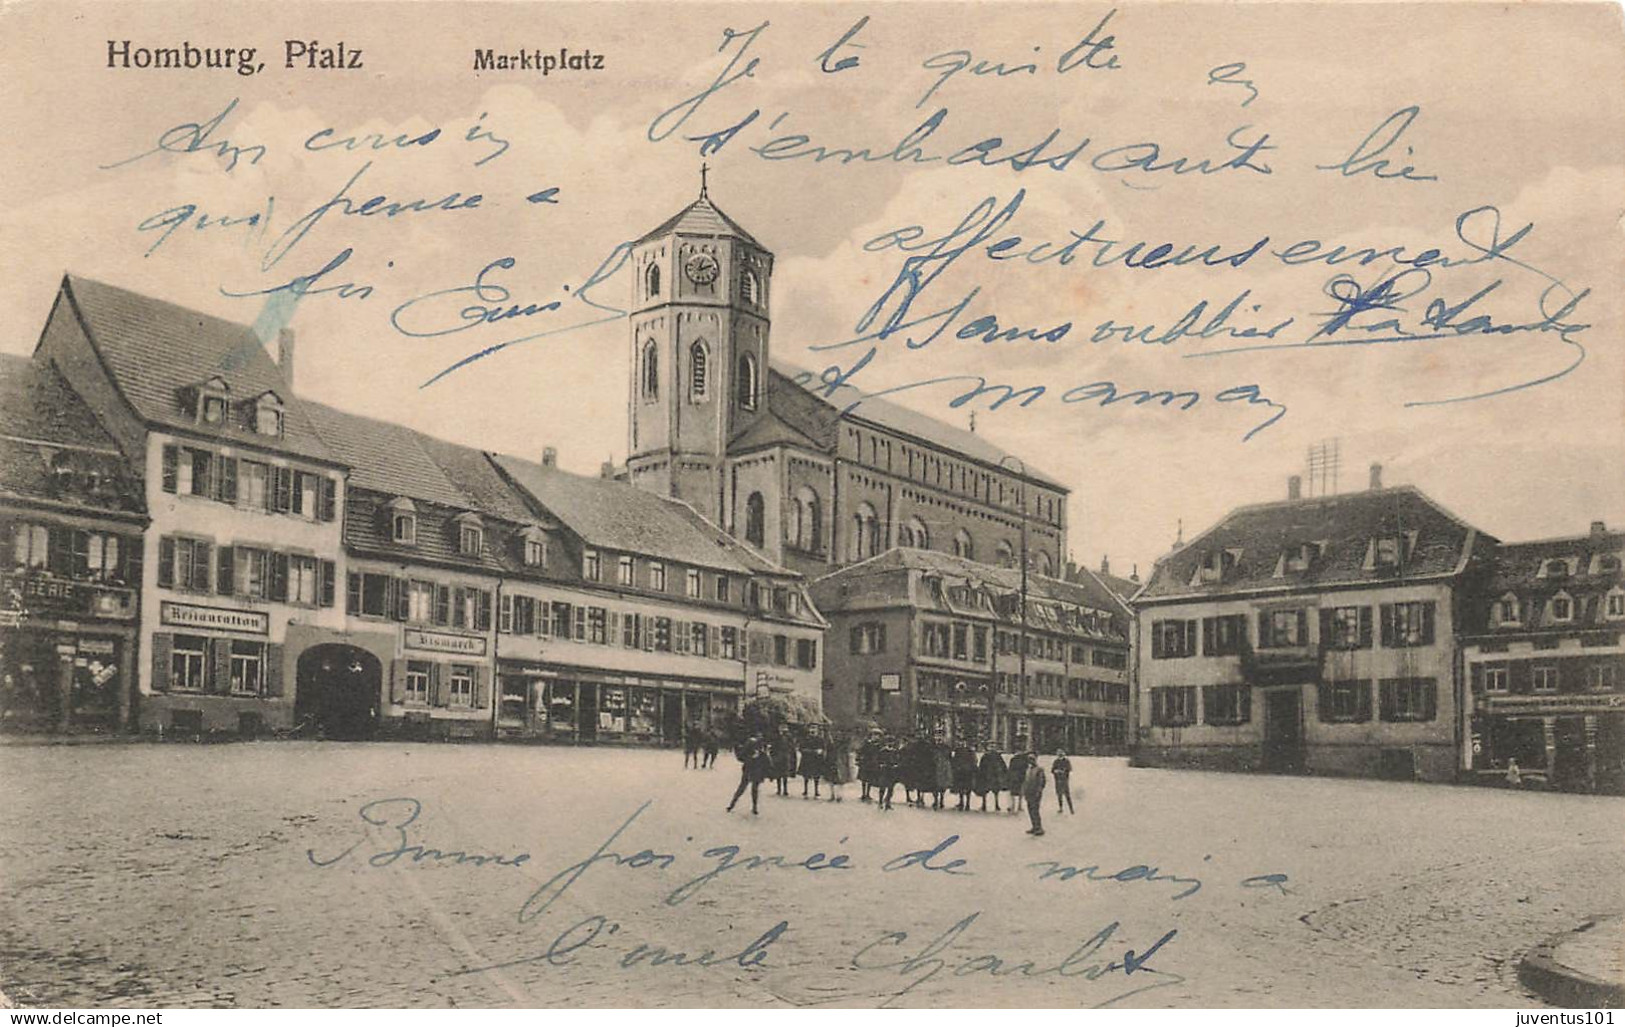 Homburg, Pfalz Marktplatz
Je te quitte en
t'embrassant bie
affectueusement
Sans oublier ta tante
et maman
Ton cousin
qui pense a
toi Emil
Restauration
Bismarck
Bonne poignée de main a
l'oncle Charlot
www.delcampe.net
juventus101